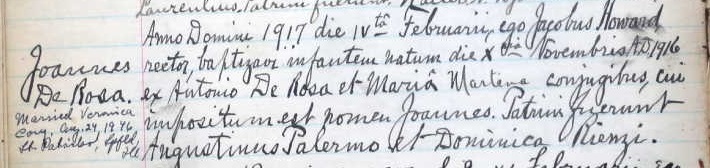 Laurentius. Patrini fuerunt
Anno Domini 1917 die IVtâ Februarii, ego Jacobus Howard
rector, baptizavi infantem natum die Xtâ Novembris A.D. 1916
ex Antonio De Rosa et Mariâ Martena conjugibus, cui
impositum est nomen Joannes. Patrini fuerunt
Augustinus Palermo et Dominica Rienzi.
Joannes
De Rosa.
Married Veronica
Aug. 24, 1946
St.